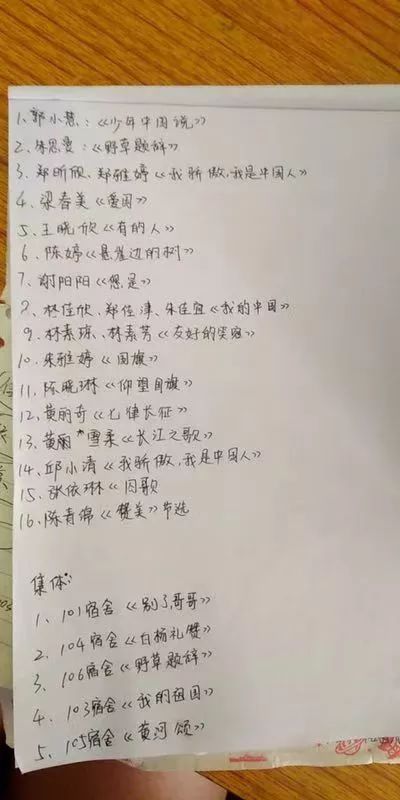 1、郭小慧：《少年中国说》
2、朱思雯：《野草题辞》
3、郑昕欣、郑雅婷《我骄傲,我是中国人》
4、梁春美《爱国》
5、王晓欣《有的人》
6、陈婷《悬崖边的树》
7、谢阳阳《您是》
8、林佳欣、郑佳津、朱佳宜《我的中国》
9、林素琼、林素芳《友好的笑容》
10、朱雅婷《国旗》
11、陈晓琳《仰望国旗》
12、黄丽奇《七律长征》
13、黄丽 雪柔《长江之歌》
14、邱小清《我骄傲,我是中国人》
15、张依琳《囚歌》
16、陈青锦《赞美》节选
集体：
1、101宿舍《别了哥哥》
2、104宿舍《白杨礼赞》
3、106宿舍《野草题辞》
4、103宿舍《我的祖国》
5、105宿舍《黄河颂》